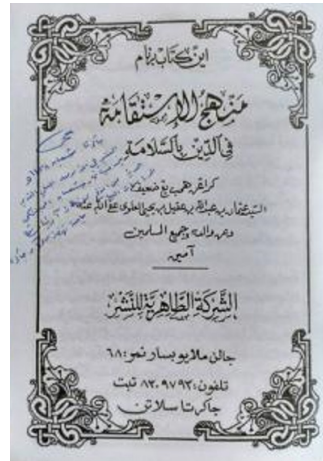 اين كتاب برنام
منهج الإستقامة
في الدين بالسلامة
كراڠن همب يڠ ضعيف
السيد عثمان بن عبدالله بن عقيل بن يحيى العلوي عفا الله عنه
وعن والديه وجميع المسلمين
آمين
الشركة الطاهرية للنشر
جالن ملايو بسار نمو: ٦٨
تلفون: ٨٣٠٩٧٩٣ تبت
جاكرتا سلاتن